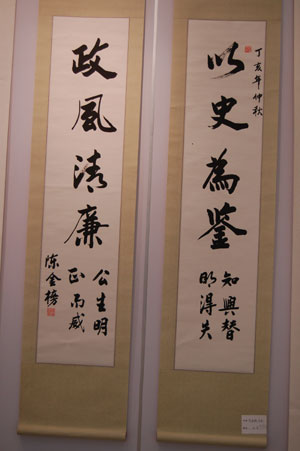 丁亥年仲秋
以史為鉴
知興替
明得失
政風清廉
公生明
正而威
陈金榜